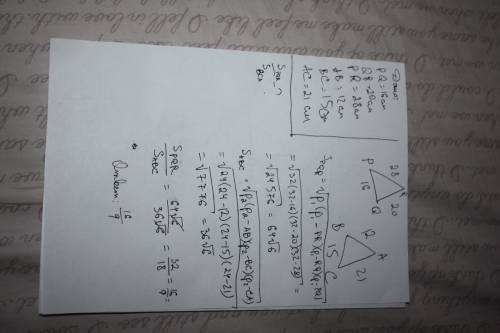 Дано:
PQ = 16см
QR = 20см
PR = 28см
AB = 12см
BC = 15см
AC = 21 см
S PQR
S ABC
28
P
16
Q
20
R
A
B
15
C
21
= √32(32-16)(32-20)(32-28) =
= √24576 = 64√6
S ABC = √p₂(p₂-AB)(p₂-BC)(p₂-CA)
= √24(24-12)(24-15)(24-21)
= √7776 = 36√6
S PQR / S ABC = 64√6 / 36√6 = 32 / 18 =
Ответ: 16/9